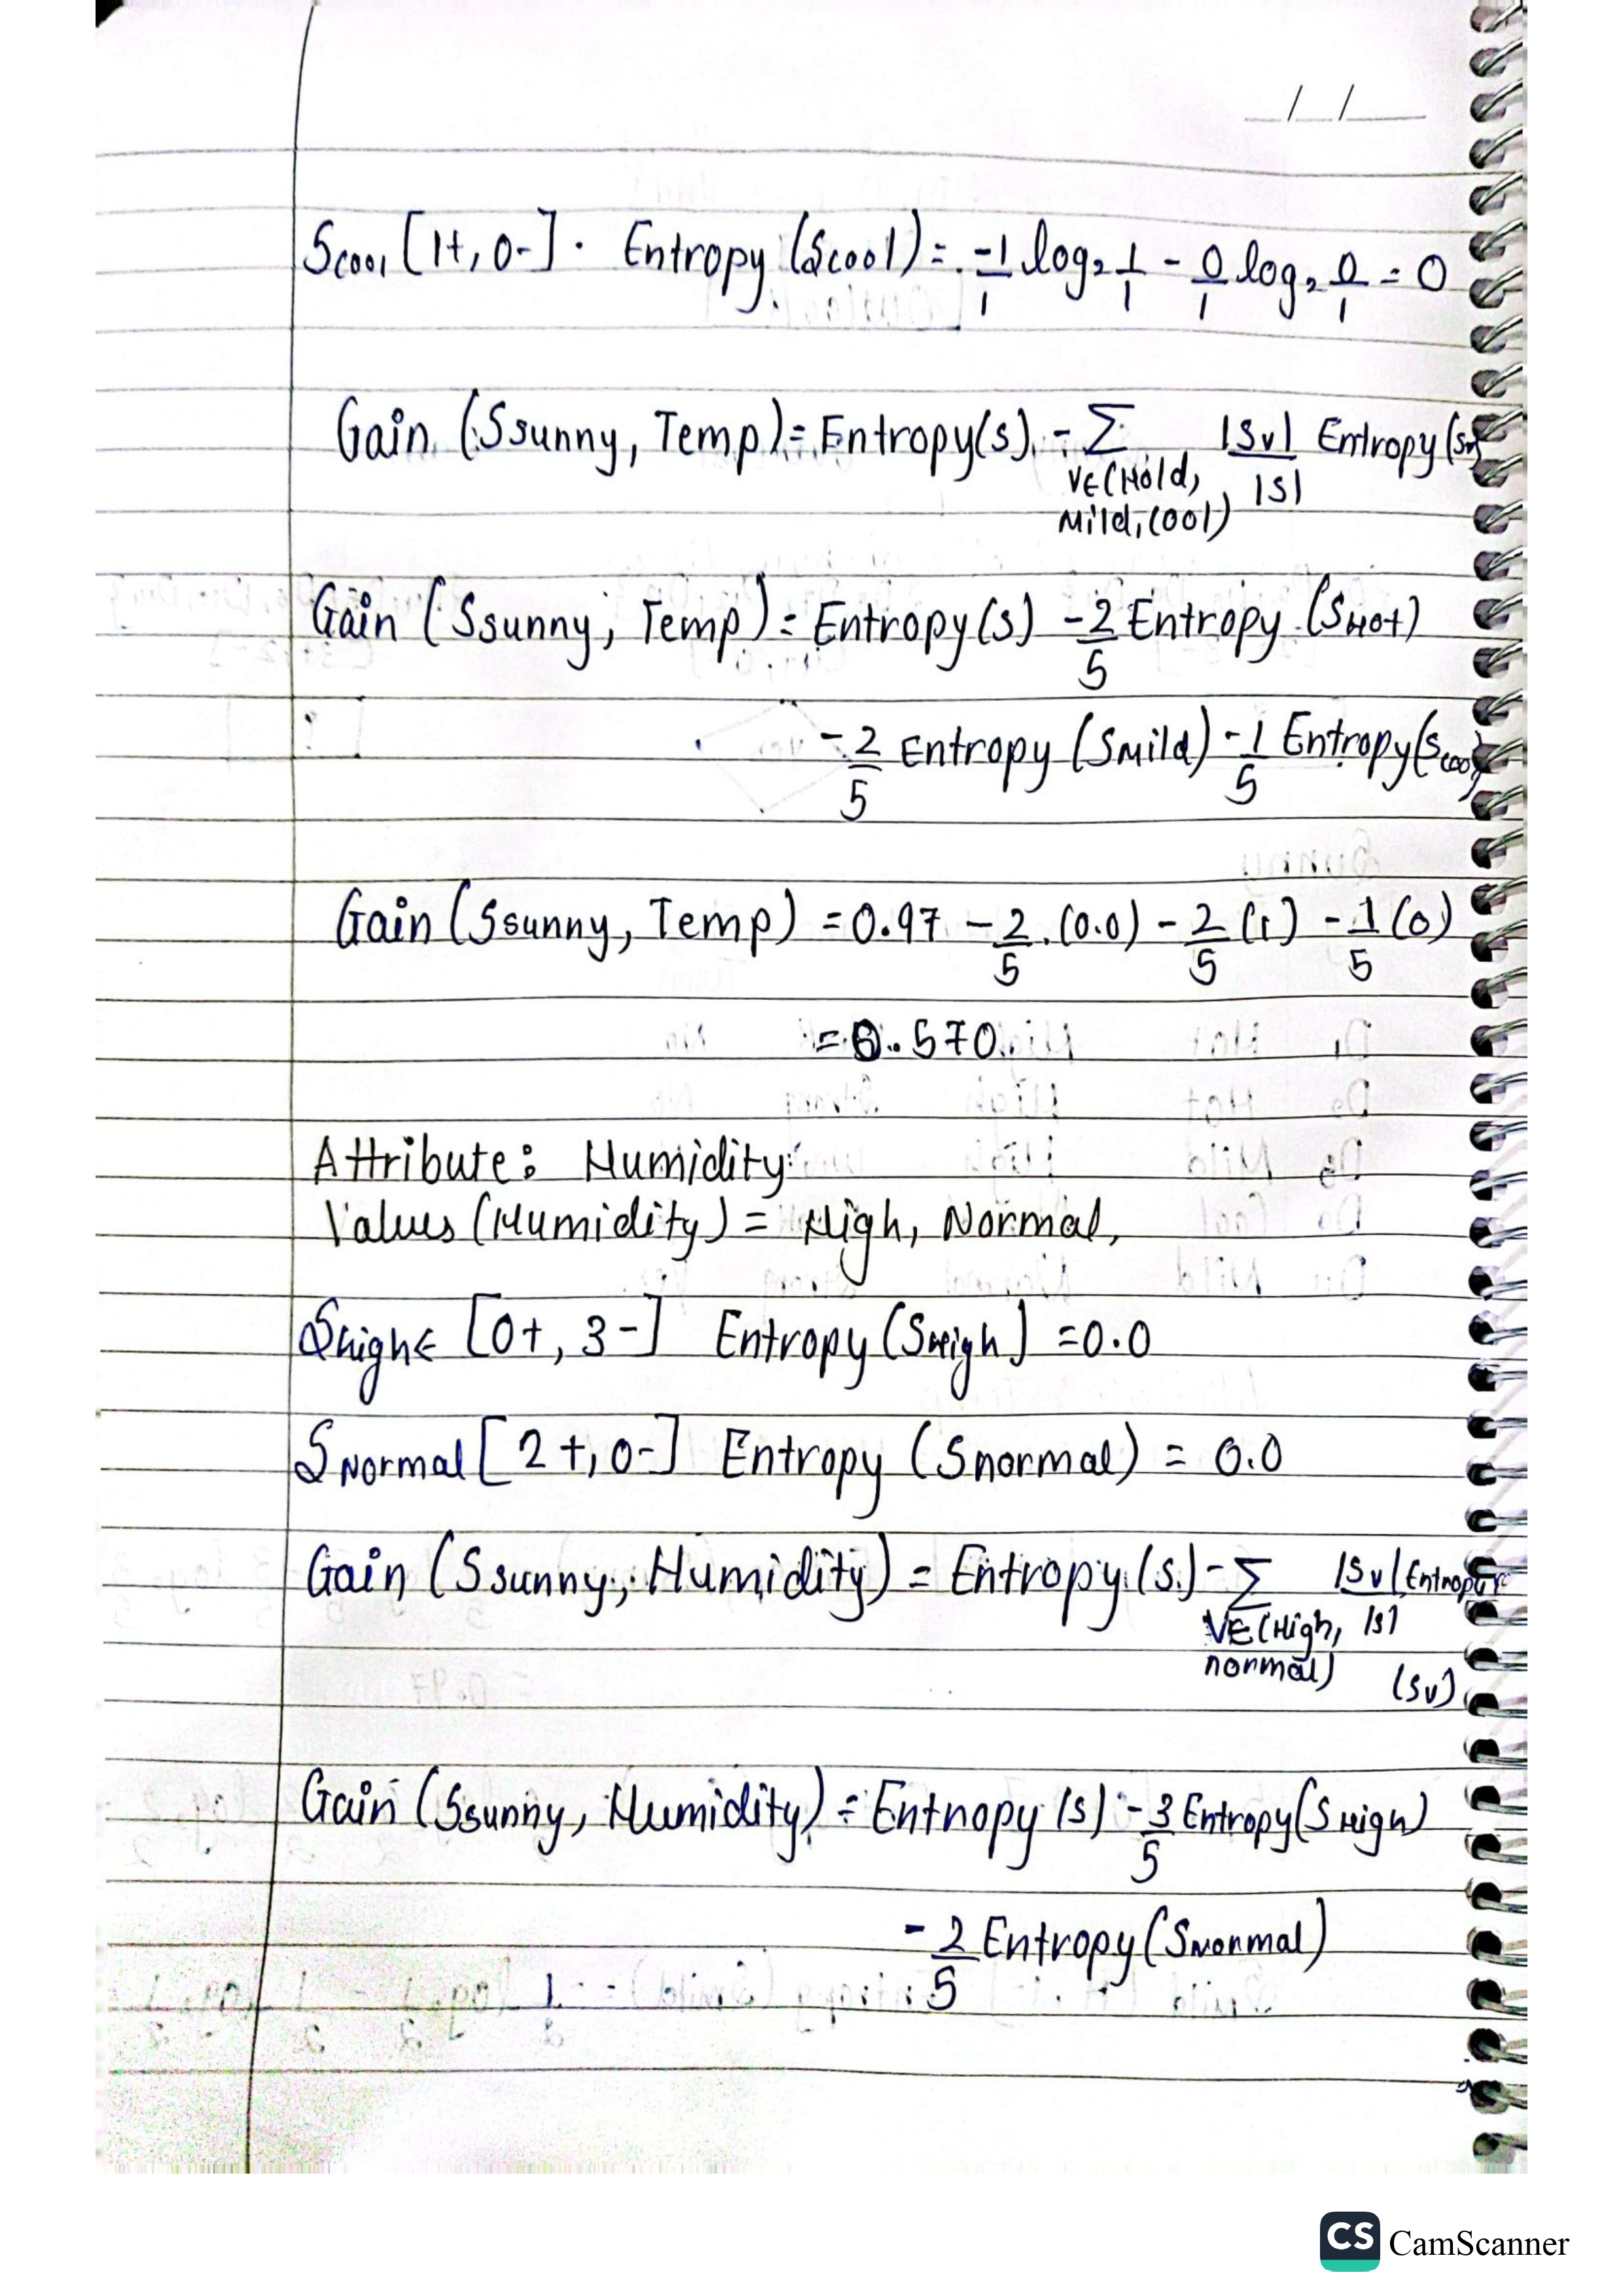 __/__/____
Scool [1+, 0-]. Entropy (Scool) = -1/1 log₂ 1/1 - 0/1 log₂ 0/1 = 0
Gain (Ssunny, Temp) = Entropy(s) - Σ |Sv|/|S| Entropy (Sv)
VE(Hold,
Mild, Cool)
Gain (Ssunny, Temp) = Entropy(s) - 2/5 Entropy (SHot)
- 2/5 Entropy (Smild) - 1/5 Entropy(Scool)
Gain (Ssunny, Temp) = 0.97 - 2/5 . (0.0) - 2/5 (1) - 1/5 (0)
= 0.570
Attribute: Humidity
Values (Humidity) = High, Normal,
Shigh ∈ [0+, 3-] Entropy (SHigh) = 0.0
SNormal [2+, 0-] Entropy (Snormal) = 0.0
Gain (Ssunny, Humidity) = Entropy (s) - Σ |Sv|/|s| Entropy
VE(High,
normal) (Sv)
Gain (Ssunny, Humidity) = Entropy (s) - 3/5 Entropy (SHigh)
- 2/5 Entropy (SNormal)
CS CamScanner